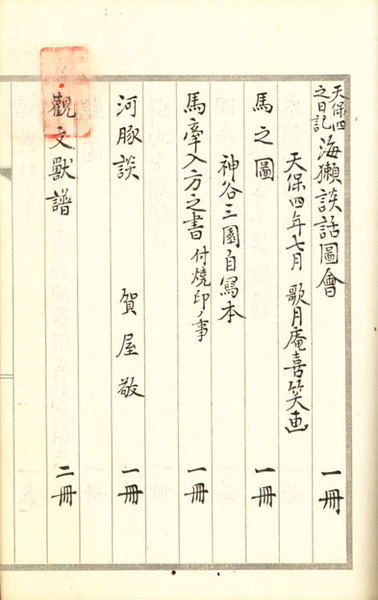 天保四之日記 海獺談話圖會 一冊
天保四年七月 歌月庵喜笑画
馬之圖 一冊
神谷三園自寫本
馬牽入方之書 付燒印ノ事 一冊
河豚談 賀屋敬 一冊
觀文獸譜 二冊